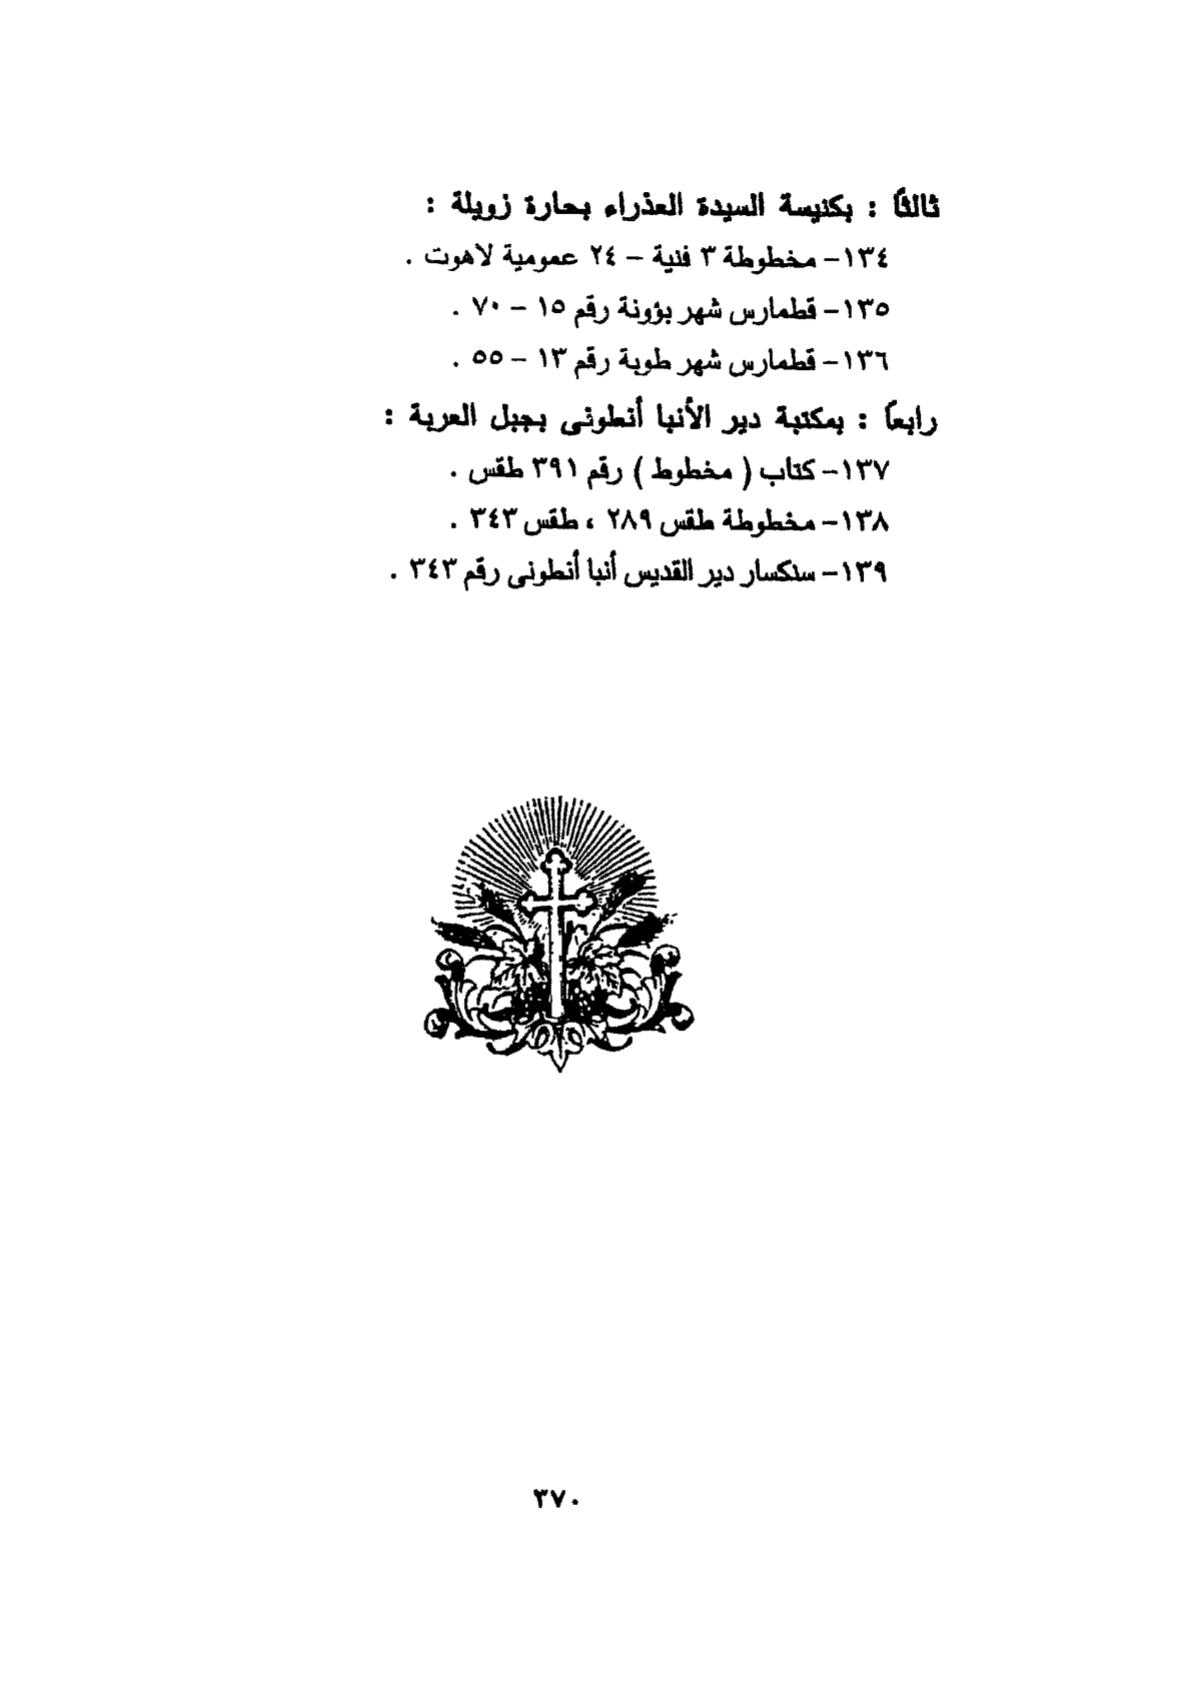 ثالثاً : بكنيسة السيدة العذراء بحارة زويلة :
١٣٤- مخطوطة ٣ فنية - ٢٤ عمومية لاهوت .
١٣٥- قطمارس شهر بؤونة رقم ١٥ - ٧٠ .
١٣٦- قطمارس شهر طوبة رقم ١٣ - ٥٥ .
رابعاً : بمكتبة دير الأنبا أنطونى بجبل العربة :
١٣٧- كتاب ( مخطوط ) رقم ٣٩١ طقس .
١٣٨- مخطوطة طقس ٢٨٩ ، طقس ٣٤٣ .
١٣٩- سنكسار دير القديس أنبا أنطونى رقم ٣٤٣ .
٣٧٠